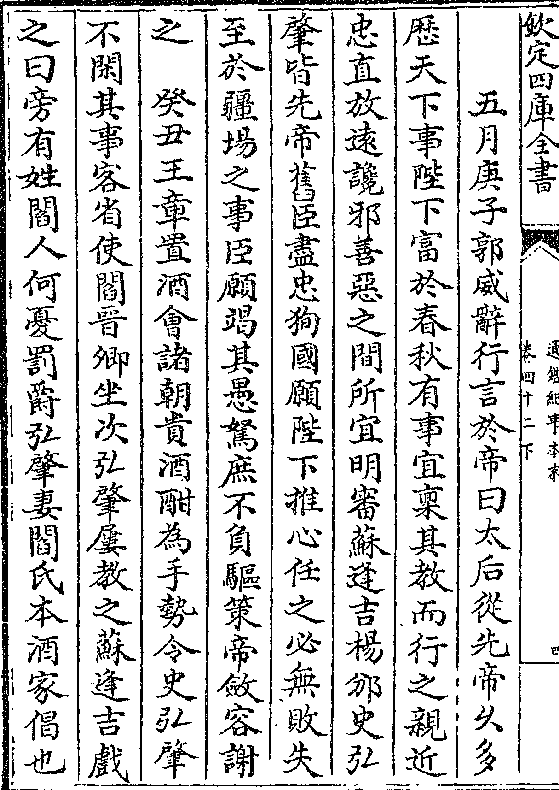 欽定四庫全書
通鑑紀事本末
卷四十二下
四
五月庚子郭威辭行言於帝曰太后從先帝久多
歴天下事陛下富於春秋有事宜稟其教而行之親近
忠直放遠讒邪善惡之間所宜明審蘇逢吉楊邠史弘
肇皆先帝舊臣盡忠徇國願陛下推心任之必無敗失
至於疆場之事臣願竭其愚駑庶不負驅策帝斂容謝
之　癸丑王章置酒會諸朝貴酒酣為手勢令史弘肇
不閑其事客省使閻晉卿坐次弘肇屢教之蘇逢吉戲
之曰旁有姓閻人何憂罰爵弘肇妻閻氏本酒家倡也